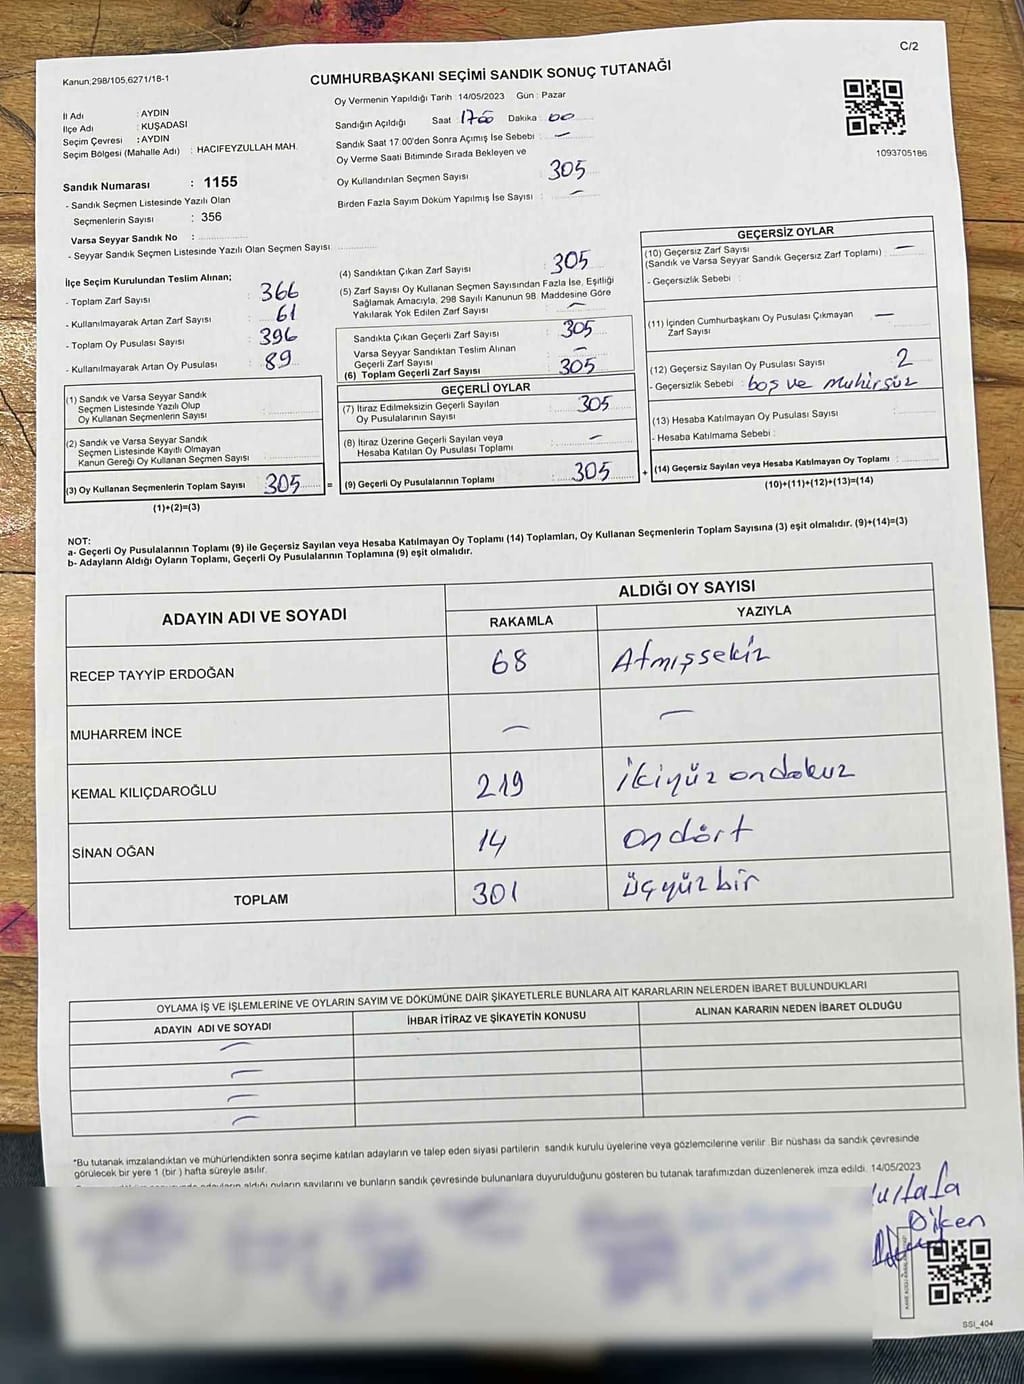 C/2
Kanun:298/105,6271/18-1
CUMHURBAŞKANI SEÇİMİ SANDIK SONUÇ TUTANAĞI
Oy Vermenin Yapıldığı Tarih : 14/05/2023 Gün : Pazar
İl Adı : AYDIN
İlçe Adı : KUŞADASI
Seçim Çevresi : AYDIN
Seçim Bölgesi (Mahalle Adı) : HACIFEYZULLAH MAH.
Sandığın Açıldığı Saat 1700 Dakika 00
Sandık Saat 17.00'den Sonra Açımış İse Sebebi : —
Oy Verme Saati Bitiminde Sırada Bekleyen ve
Oy Kullandırılan Seçmen Sayısı 305
Birden Fazla Sayım Döküm Yapılmış İse Sayısı : —
1093705186
Sandık Numarası : 1155
- Sandık Seçmen Listesinde Yazılı Olan
Seçmenlerin Sayısı : 356
Varsa Seyyar Sandık No :
- Seyyar Sandık Seçmen Listesinde Yazılı Olan Seçmen Sayısı
İlçe Seçim Kurulundan Teslim Alınan;
- Toplam Zarf Sayısı 366
- Kullanılmayarak Artan Zarf Sayısı : 61
- Toplam Oy Pusulası Sayısı : 396
- Kullanılmayarak Artan Oy Pusulası : 89
(1) Sandık ve Varsa Seyyar Sandık
Seçmen Listesinde Yazılı Olup
Oy Kullanan Seçmenlerin Sayısı :
(2) Sandık ve Varsa Seyyar Sandık
Seçmen Listesinde Kayıtlı Olmayan
Kanun Gereği Oy Kullanan Seçmen Sayısı :
(3) Oy Kullanan Seçmenlerin Toplam Sayısı 305 =
(1)+(2)=(3)
(4) Sandıktan Çıkan Zarf Sayısı : 305
(5) Zarf Sayısı Oy Kullanan Seçmen Sayısından Fazla İse, Eşitliği
Sağlamak Amacıyla, 298 Sayılı Kanunun 98. Maddesine Göre
Yakılarak Yok Edilen Zarf Sayısı : —
Sandıkta Çıkan Geçerli Zarf Sayısı : 305
Varsa Seyyar Sandıktan Teslim Alınan
Geçerli Zarf Sayısı : —
(6) Toplam Geçerli Zarf Sayısı 305
GEÇERLİ OYLAR
(7) İtiraz Edilmeksizin Geçerli Sayılan
Oy Pusulalarının Sayısı : 305
(8) İtiraz Üzerine Geçerli Sayılan veya
Hesaba Katılan Oy Pusulası Toplamı : —
(9) Geçerli Oy Pusulalarının Toplamı : 305 +
GEÇERSİZ OYLAR
(10) Geçersiz Zarf Sayısı
(Sandık ve Varsa Seyyar Sandık Geçersiz Zarf Toplamı) : —
- Geçersizlik Sebebi :
(11) İçinden Cumhurbaşkanı Oy Pusulası Çıkmayan
Zarf Sayısı —
(12) Geçersiz Sayılan Oy Pusulası Sayısı : 2
- Geçersizlik Sebebi : boş ve muhirsüz
(13) Hesaba Katılmayan Oy Pusulası Sayısı :
- Hesaba Katılmama Sebebi :
(14) Geçersiz Sayılan veya Hesaba Katılmayan Oy Toplamı :
(10)+(11)+(12)+(13)=(14)
NOT:
a- Geçerli Oy Pusulalarının Toplamı (9) ile Geçersiz Sayılan veya Hesaba Katılmayan Oy Toplamı (14) Toplamları, Oy Kullanan Seçmenlerin Toplam Sayısına (3) eşit olmalıdır. (9)+(14)=(3)
b- Adayların Aldığı Oyların Toplamı, Geçerli Oy Pusulalarının Toplamına (9) eşit olmalıdır.
ADAYIN ADI VE SOYADI ALDIĞI OY SAYISI
RAKAMLA YAZIYLA
RECEP TAYYİP ERDOĞAN 68 Atmışsekiz
MUHARREM İNCE — —
KEMAL KILIÇDAROĞLU 219 ikiyüz ondokuz
SİNAN OĞAN 14 ondört
TOPLAM 301 üçyüzbir
OYLAMA İŞ VE İŞLEMLERİNE VE OYLARIN SAYIM VE DÖKÜMÜNE DAİR ŞİKAYETLERLE BUNLARA AİT KARARLARIN NELERDEN İBARET BULUNDUKLARI
ADAYIN ADI VE SOYADI İHBAR İTİRAZ VE ŞİKAYETİN KONUSU ALINAN KARARIN NEDEN İBARET OLDUĞU
—
—
—
—
*Bu tutanak imzalandıktan ve mühürlendikten sonra seçime katılan adayların ve talep eden siyasi partilerin sandık kurulu üyelerine veya gözlemcilerine verilir. Bir nüshası da sandık çevresinde
görülecek bir yere 1 (bir ) hafta süreyle asılır.
adayların aldığı oyların sayılarını ve bunların sandık çevresinde bulunanlara duyurulduğunu gösteren bu tutanak tarafımızdan düzenlenerek imza edildi. 14/05/2023
Mustafa
Diken
SSI_404